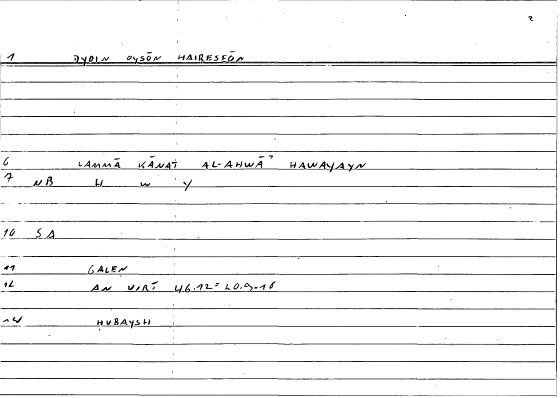 2
1 DYOIN OYSŌN HAIRESEŌN
6 LAMMĀ KĀNAT AL-AHWĀʾ HAWAYAYN
7 NB H W Y
10 SA
11 GALEN
12 AN VIRT 46.12 = 20.9-16
14 ḤUBAYSH